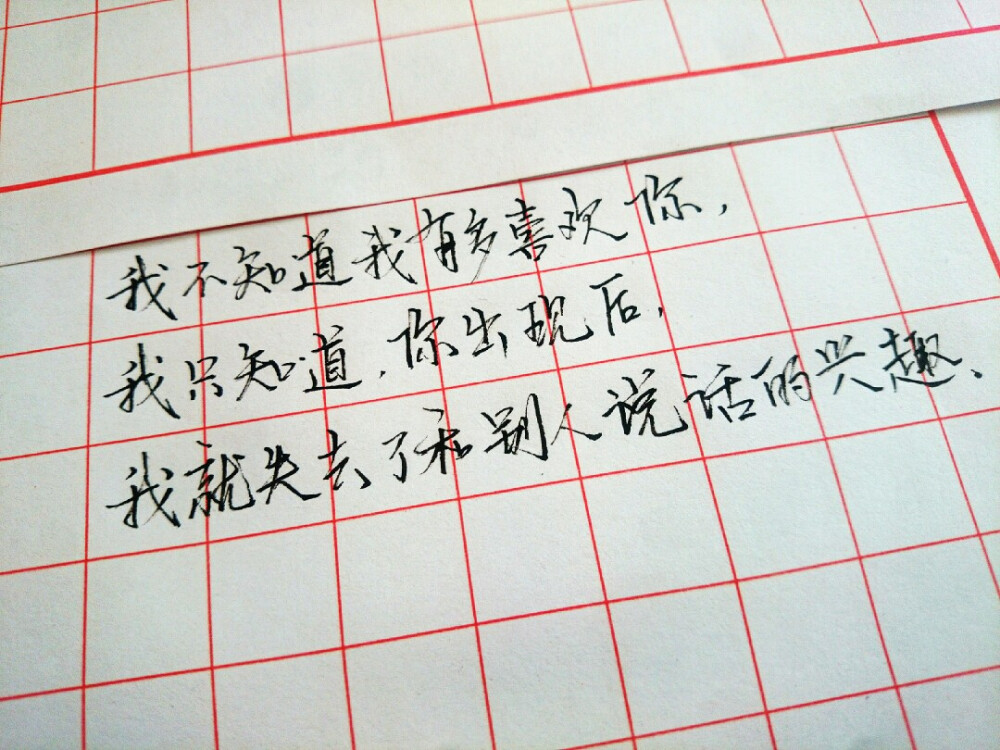 我不知道我有多喜欢你，
我只知道，你出现后，
我就失去了和别人说话的兴趣、